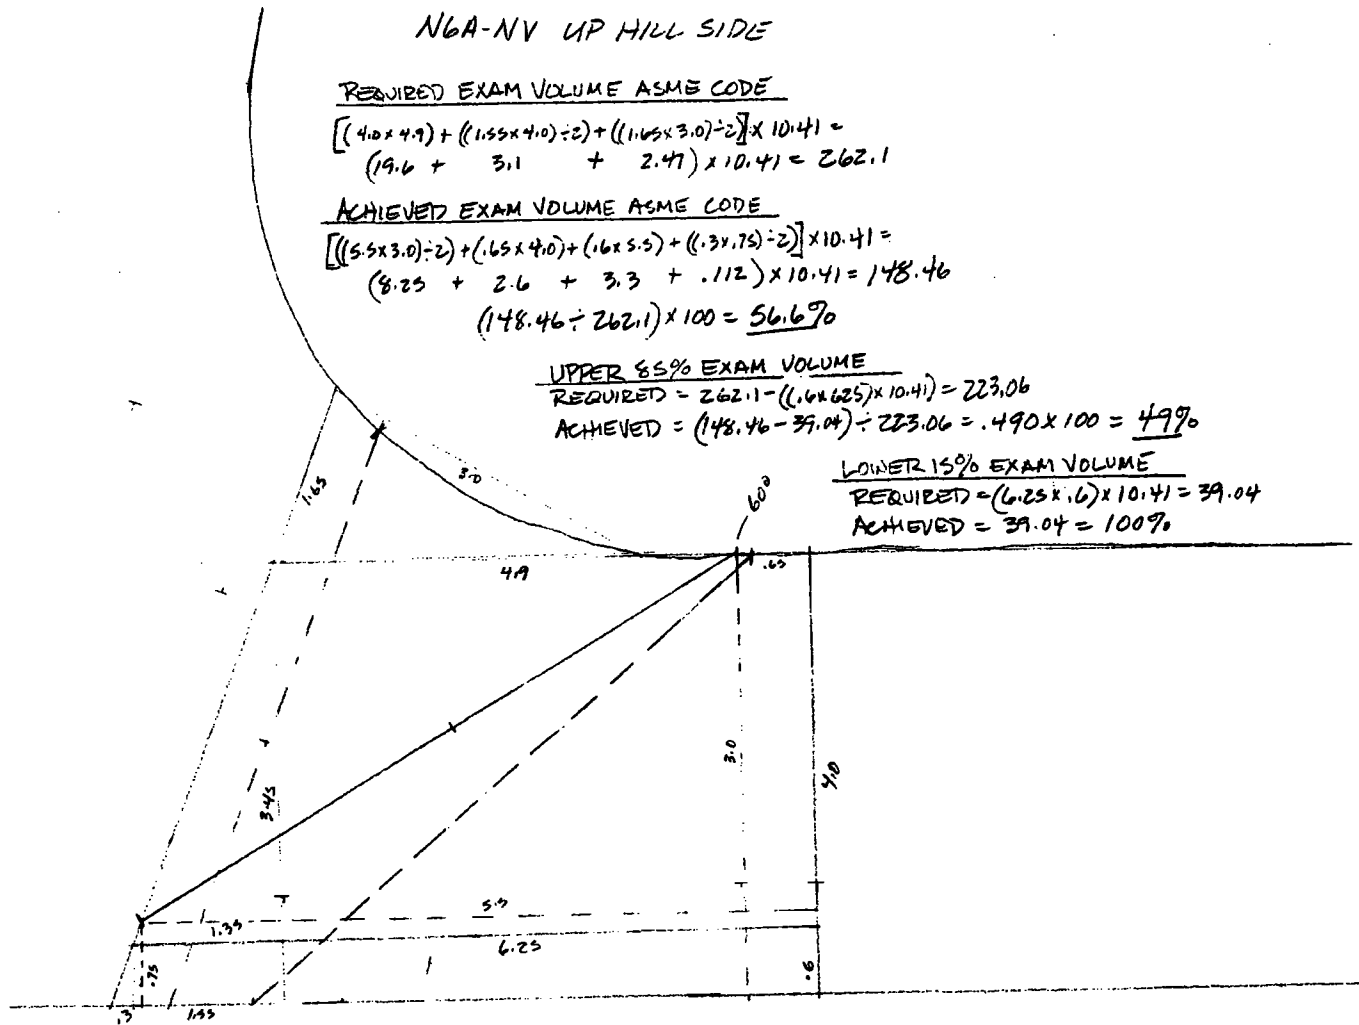 N6A-NV UP HILL SIDE
REQUIRED EXAM VOLUME ASME CODE
[(4.0 x 4.9) + ((1.55 x 4.0) ÷ 2) + ((1.65 x 3.0) ÷ 2] x 10.41 =
(19.6 + 3.1 + 2.47) x 10.41 = 262.1
ACHIEVED EXAM VOLUME ASME CODE
[((5.5 x 3.0) ÷ 2) + (.65 x 4.0) + (.6 x 5.5) + ((.3 x .75) ÷ 2)] x 10.41 =
(8.25 + 2.6 + 3.3 + .112) x 10.41 = 148.46
(148.46 ÷ 262.1) x 100 = 56.6%
UPPER 85% EXAM VOLUME
REQUIRED = 262.1 - ((.6 x 625) x 10.41) = 223.06
ACHIEVED = (148.46 - 39.04) ÷ 223.06 = .490 x 100 = 49%
LOWER 15% EXAM VOLUME
REQUIRED = (6.25 x .6) x 10.41 = 39.04
ACHIEVED = 39.04 = 100%
1.65
3.0
600
4.9
.65
3.45
3.0
4.0
5.5
1.35
6.25
.75
.6
.3
1.55